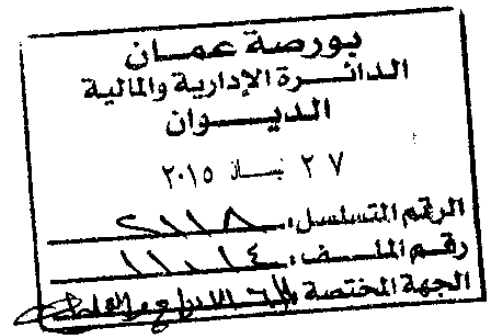 بورصة عمان
الدائرة الإدارية والمالية
الديوان
٢٧ نيسان ٢٠١٥
الرقم المتسلسل: ٢١١٨
رقم الملف: ١١٠١٤
الجهة المختصة: الإدراج